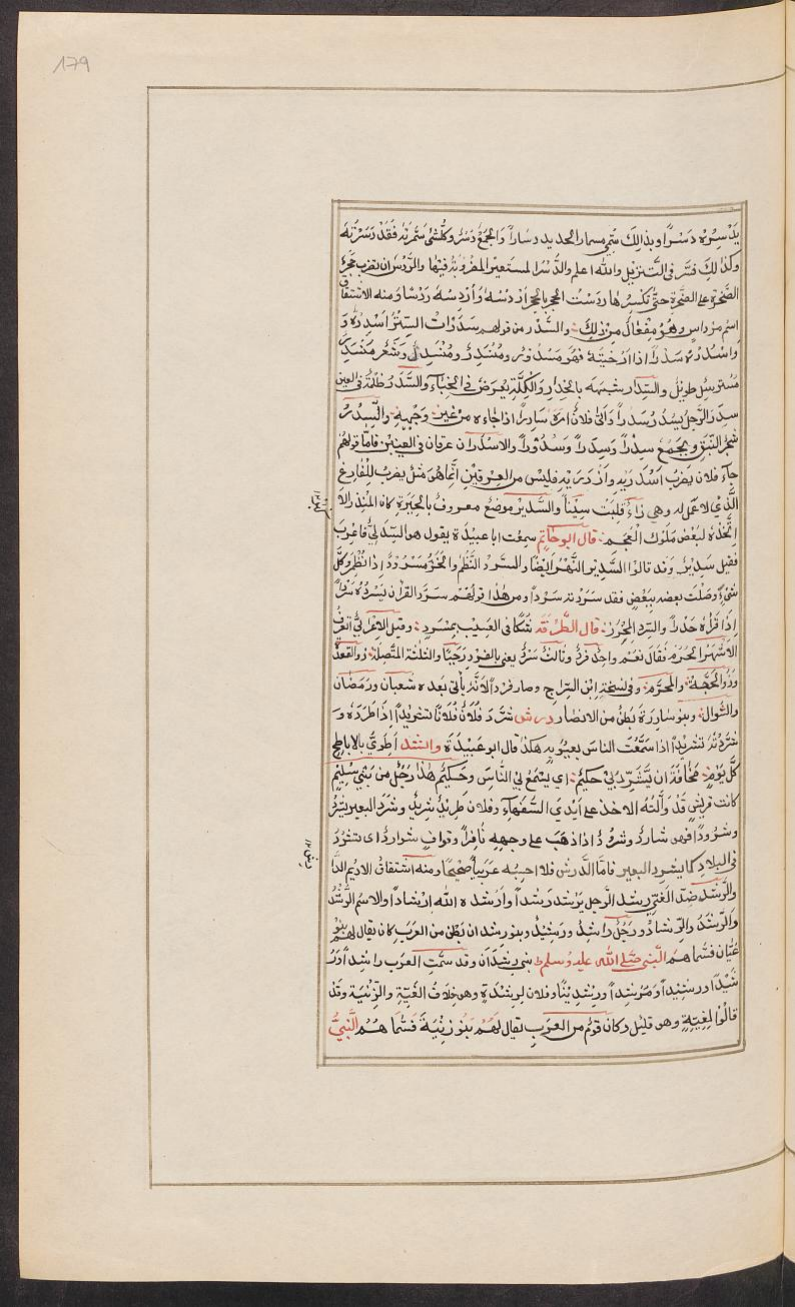 179
يَدْسِرُه دَسْرًا وبذالِكَ سُمّي مسمار الحديد دسارًا والجمعُ دُسُر وكلُّ شئ سمّرته فقَدْ دَسَرْتَهُ
وكذلِكَ فسّر فى التّنزيل والله اعلم والدُّسُر المفروزة فيها والرَّدْس ان تضرب حجرة
الصَّخرَة على الصَّخرة حتّى تكسرها ردست الحجر بالحجر اردسُه وأردِسه ردْسًا ومنه الاشتقاق
اسم مرداسٍ وهو مِفْعالٌ من ذلِكَ والسَّدْر من قولهم سَدَرْتُ السِّتر اسدِرُه وَ
واسْدُرُه سَدْرًا اذا ارْخيتَه فهو مسدُورٌ ومُنْسَدِرٌ ومُنْسَدِل وشَعْر مُنْسَدِر
مُسترسِل طويل والسِّدار شبيهه بالخِدْر والكِلَّة يعرض فى الخباء والسَّدَر ظلمة فى العين
سدِرَ الرَّجل يسدَرُ سدَرًا وأتى فلان امره سادِرًا اذا جاءه من غير وَجْهِهِ والسِّدْرُ
شجر النَّبْق ويجمع سِدْرًا وسِدَرًا وسُدُورًا والاسْدَران عرقان فى العينين فامّا قولهم
جآء فلان يضرِبُ اسْدَرَيه وازدَرَيه فليس من العِرقَين انّما هو مثل يضرب للفارغ
الَّذي لا عمل له وهى زاءٌ قُلِبَت سينًا والسَّدير موضع معروف بالحِيرة كان المنذر الا
اتّخذه لبعض ملوك العجم قال ابو حاتم سمعت ابا عبيدة يقول هو السِّدِلَّى فاعرب
فقيل سدير وقد قالوا السَّدير النَّهر ايضًا والسَّرد النَّظم والخرز مسرُودٌ اذا نُظم وكلّ
شئ وصَلْت بعضه ببعضٍ فقد سَرَدْته سَرْدًا ومن هذا قولهم سرد القرآن يَسرُده سَرْدًا
اذا قرأه حدرًا والسِّرد المخرز قال الطّرفه شكّا فى العسيب بمسرد وقيل لاعرابىّ اتعرف
الاشهر الحُرُم فقال نعم واحِدٌ فردٌ وثلاثٌ سردٌ يعنى بالفرد رجبًا والثلثة المتَّصلة ذو القعدة
وذو الحجّة والمحرّم وفى نسخة ابن السّراج وصار فردًا لانّه يأتى بعده شعبان ورمضان
والشّوال وبنو سارِدَة بطنٌ من الانصار درش شرَّد فلانٌ فلانًا تشريدًا اذا طرده و
شرّدتُه تشريدًا اذا سمَّعت الناس بعيوبه هكذا قال ابو عبيدَة وانشد أطوِّف بالاباطِح
كلَّ يومٍ مخافةَ ان يُشرِّدَ بى حكيم اى يسمّع بى النّاس وحكيم هذا رجل من بنى سُليم
كانت قريش قد ولَّتْهُ الاخذ على أيدي السُّفهآء وفلان طريدٌ شريدٌ وشرَد البعير يشرُد
وشُرُودًا فهو شاردٌ وشرُودٌ اذا ذهَب على وجهِهِ نافِرًا وقوافٍ شوارِد اى تشرُد
فى البلاد كما يشرد البعير فامّا الدّرش فلا احسبه عربيًّا صحيحًا ومنه اشتقاق الاديم الدّا
والرَّشد ضدّ الغَىّ رشد الرّجل يرشد رشدًا وأرشده الله ارشادًا والاسم الرُّشْدُ
والرَّشَدُ والرّشاد ورجُلٌ راشِدٌ ورشيدٌ وبنو رشدان بطن من العرب كان يقال لهم بنو
غيّان فسمّاهم النّبى صلّى الله عليه وسلم بنى رشدان وقد سمّت العرب راشدًا ورُ
شيدًا ورشيدًا ومُرشدًا ورِشْدينًا وفلان لِرِشْدَةٍ وهى خلاف الغيّة والزّنية وقد
قالوا لِغِيّةٍ وهو قليل وكان قوم من العرب يقال لهم بنو زِنْيَةَ فسمّاهُمُ النّبىُّ